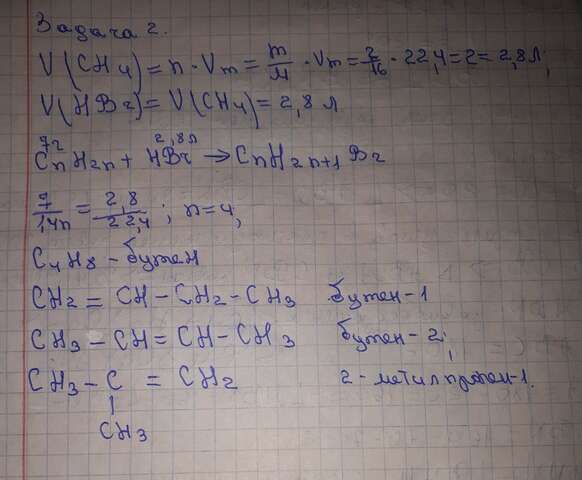 Задача 2.
V(CH4) = n · Vm = m/M · Vm = 2/16 · 22,4 = 2 = 2,8 л;
V(HBr) = V(CH4) = 2,8 л
7г 2,8л
CnH2n + HBr → CnH2n+1 Br
7/14n = 2,8/22,4 ; n=4,
C4H8 - бутен
CH2 = CH - CH2 - CH3 бутен-1
CH3 - CH = CH - CH3 бутен-2;
CH3 - C = CH2 2-метилпропен-1.
|
CH3